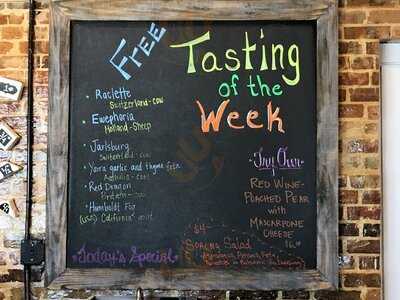 Free Tasting
of the
Week
• Raclette
Switzerland - cow
• Ewephoria
Holland - Sheep
• Jarlsburg
Switzerland - cow
• Yarra garlic and thyme feta
Australia - cow
• Red Dragon
- cow
• Humboldt Fog
(USA) California
Today's Special
Try Our
Red Wine-
Poached Pear
with
Mascarpone
Cheese
$4
Spring Salad